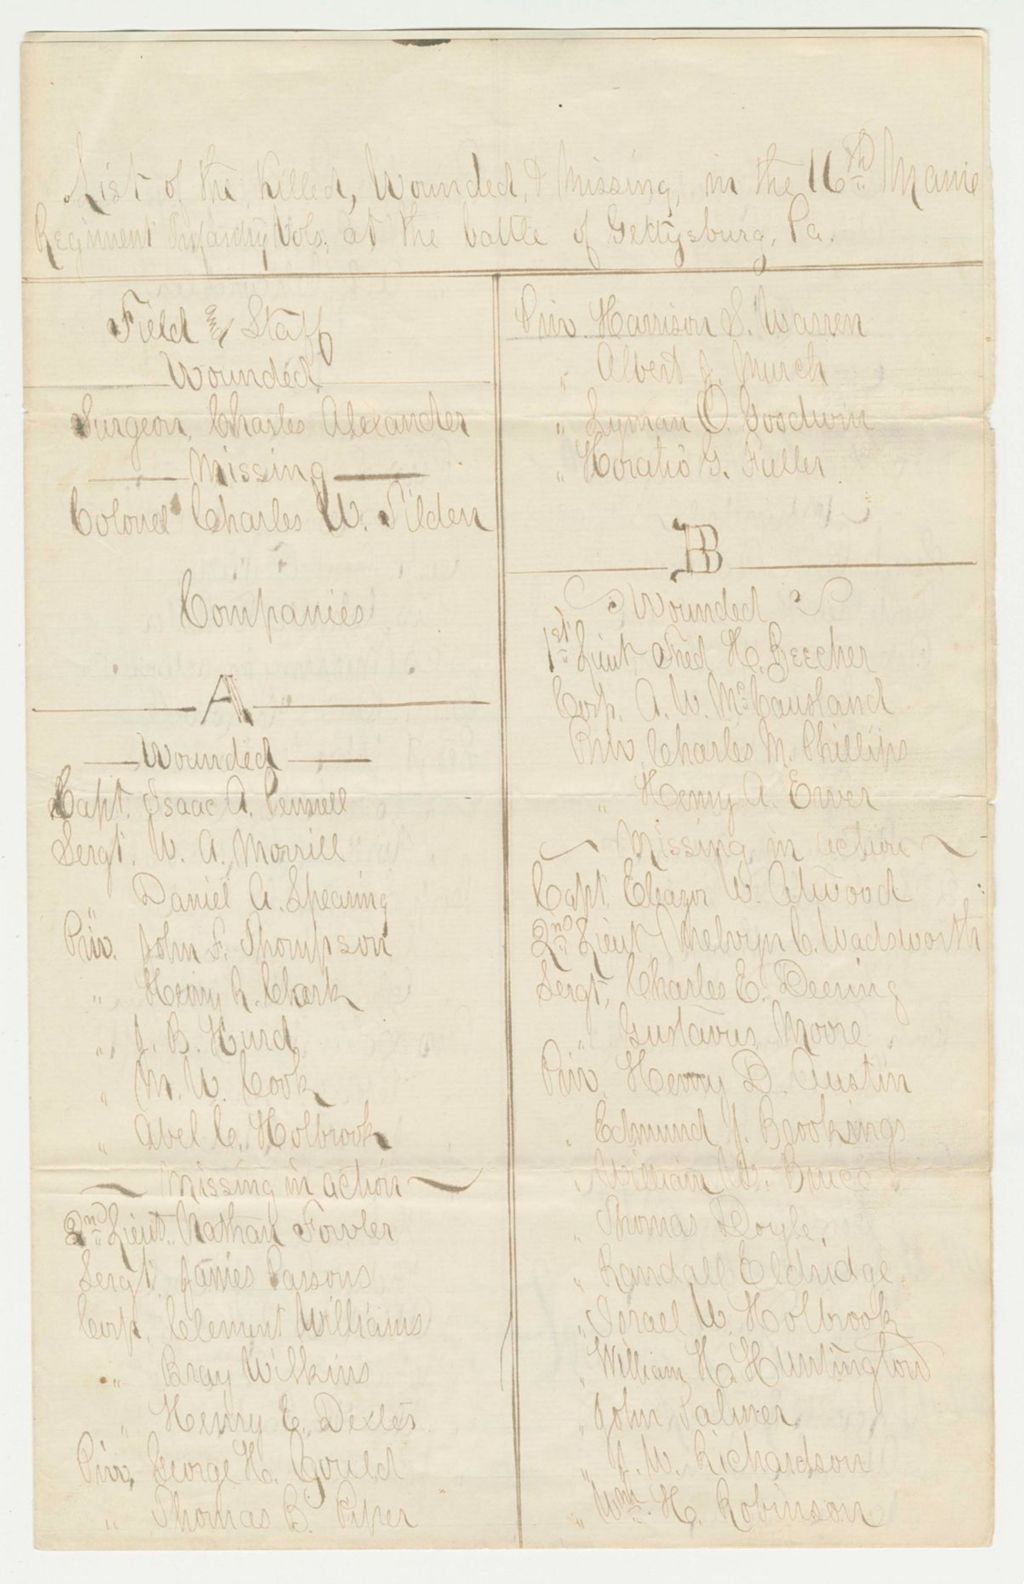 List of the Killed, Wounded, & Missing, in the 16th Maine
Regiment Infantry Vols. at the battle of Gettysburg, Pa.
Field and Staff
Wounded
Surgeon, Charles Alexander
Missing
Colonel Charles W. Tilden
Companies
A
Wounded
Capt. Isaac A. Pennell
Sergt. W. A. Morrill
" Daniel A. Spearing
Priv. John F. Thompson
" Henry R. Clark
" J. B. Hurd
" M. W. Cook
" Abel C. Holbrook
Missing in action
2nd Lieut. Nathan Fowler
Sergt. James Parsons
Corp. Clement Williams
" Bray Wilkins
" Henry E. Dexter
Priv. George H. Gould
" Thomas B. Piper
Priv. Harrison S. Warren
" Albert J. Murch
" Lyman O. Goodwin
" Horatio G. Fuller
B
Wounded
1st Lieut. Fred H. Beecher
Corp. A. W. McCausland
Priv. Charles M. Phillips
" Henry A. Ewer
Missing in action
Capt. Eleazer W. Atwood
2nd Lieut. Melvyn C. Wadsworth
Sergt. Charles E. Deering
" Gustavus Moore
Priv. Henry D. Austin
" Edmund J. Brookings
" William W. Bruce
" Thomas Doyle,
" Randall Eldridge
" Israel W. Holbrook
" William H. Huntington
" John Palmer
" J. W. Richardson
" Wm. H. Robinson